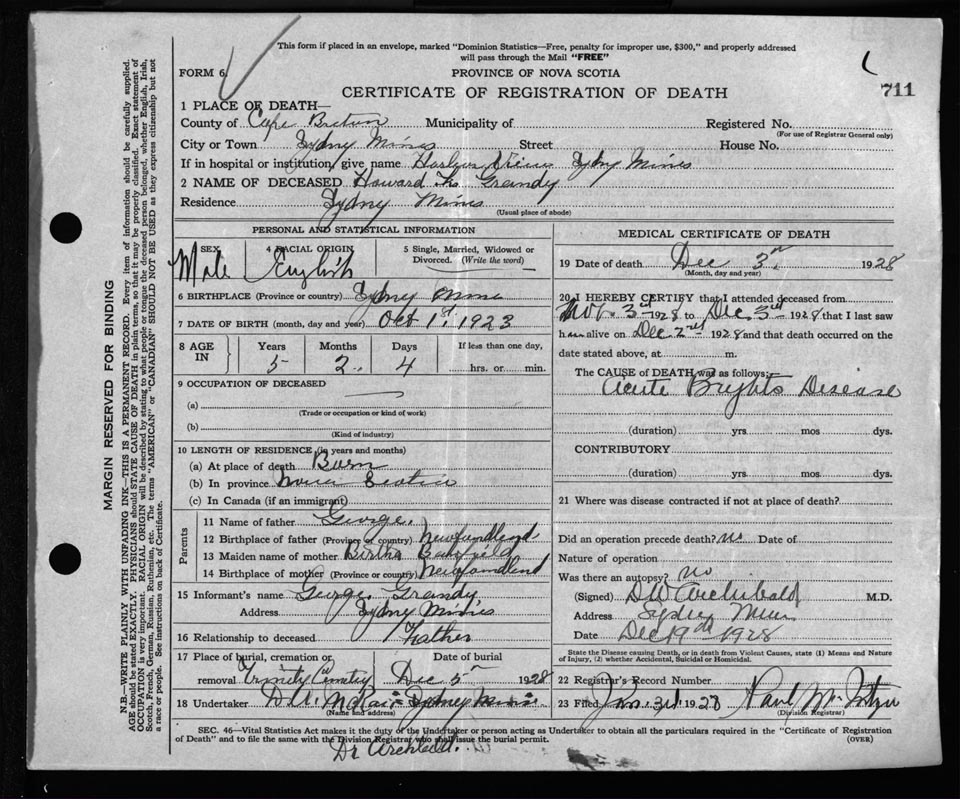 This form if placed in an envelope, marked "Dominion Statistics—Free, penalty for improper use, $300," and properly addressed
will pass through the Mail "FREE"
FORM 6. PROVINCE OF NOVA SCOTIA
CERTIFICATE OF REGISTRATION OF DEATH 711
1 PLACE OF DEATH—
County of Cape Breton Municipality of Registered No.
(For use of Registrar General only)
City or Town Sydney Mines Street House No.
If in hospital or institution, give name Harbor View Sydney Mines
2 NAME OF DECEASED Howard Grandy
Residence Sydney Mines
(Usual place of abode)
PERSONAL AND STATISTICAL INFORMATION
3 SEX 4 RACIAL ORIGIN 5 Single, Married, Widowed or
Divorced. (Write the word)
Male English
6 BIRTHPLACE (Province or country) Sydney Mines
7 DATE OF BIRTH (month, day and year) Oct 1st 1923
8 AGE IN Years Months Days If less than one day,
5 2 4 hrs. or min.
9 OCCUPATION OF DECEASED
(a)
(Trade or occupation or kind of work)
(b)
(Kind of industry)
10 LENGTH OF RESIDENCE (in years and months)
(a) At place of death Born
(b) In province Nova Scotia
(c) In Canada (if an immigrant)
Parents
11 Name of father George.
12 Birthplace of father (Province or country) Newfoundland
13 Maiden name of mother Bertha
14 Birthplace of mother (Province or country) Newfoundland
15 Informant's name George Grandy
Address Sydney Mines
16 Relationship to deceased Father
17 Place of burial, cremation or Date of burial
removal Trinity Cemetery Dec 5 1928
18 Undertaker Sydney Mines
(Name and address)
MEDICAL CERTIFICATE OF DEATH
19 Date of death Dec 3rd 1928
(Month, day and year)
20 I HEREBY CERTIFY that I attended deceased from
Nov. 3rd 1928 to Dec 3rd 1928 that I last saw
him alive on Dec 2nd 1928 and that death occurred on the
date stated above, at m.
The CAUSE OF DEATH was as follows:
Acute Brights Disease
(duration) yrs. mos. dys.
CONTRIBUTORY
(duration) yrs. mos. dys.
21 Where was disease contracted if not at place of death?
Did an operation precede death? no Date of
Nature of operation
Was there an autopsy? no
(Signed) DW Archibald M.D.
Address Sydney Mines
Date Dec 19th 1928
State the Disease causing Death, or in death from Violent Causes, state (1) Means and Nature
of Injury, (2) whether Accidental, Suicidal or Homicidal.
22 Registrar's Record Number
23 Filed
(Division Registrar)
SEC. 46—Vital Statistics Act makes it the duty of the Undertaker or person acting as Undertaker to obtain all the particulars required in the "Certificate of Registration
of Death" and to file the same with the Division Registrar who shall issue the burial permit. (OVER)
Dr Archibald.
MARGIN RESERVED FOR BINDING
N.B.—WRITE PLAINLY WITH UNFADING INK—THIS IS A PERMANENT RECORD. Every item of information should be carefully supplied.
AGE should be stated EXACTLY. PHYSICIANS should STATE CAUSE OF DEATH in plain terms, so that it may be properly classified. Exact statement of
OCCUPATION is very important. RACIAL ORIGIN will be described by stating to what people or tongue the deceased person belonged, whether English, Irish,
Scotch, French, German, Russian, Ruthenian, etc. The terms "AMERICAN" or "CANADIAN" SHOULD NOT BE USED as they express citizenship but not
a race or people. See instructions on back of Certificate.